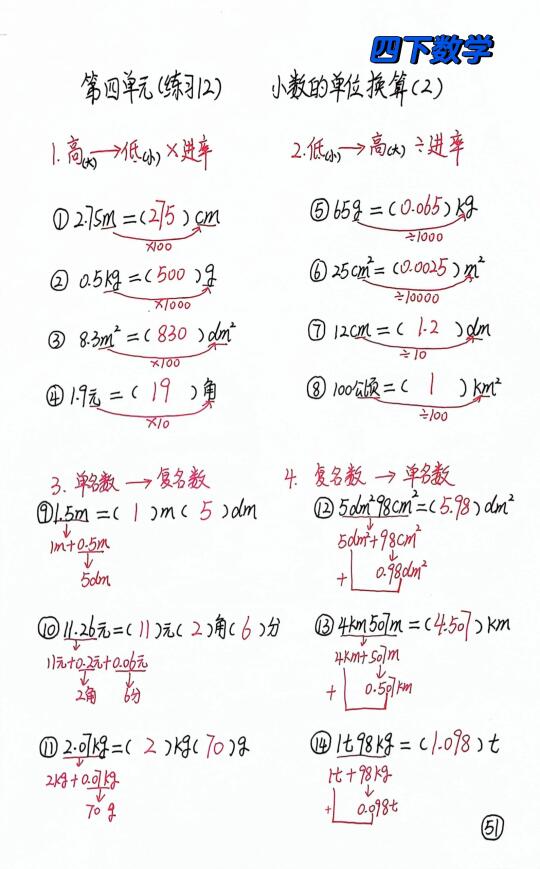 四下数学
第四单元(练习12) 小数的单位换算(2)
1.高(大)→低(小)×进率
①2.75m=(275)cm
×100
②0.5kg=(500)g
×1000
③8.3m²=(830)dm²
×100
④1.9元=(19)角
×10
2.低(小)→高(大)÷进率
⑤65g=(0.065)kg
÷1000
⑥25cm²=(0.0025)m²
÷10000
⑦12cm=(1.2)dm
÷10
⑧100公顷=(1)km²
÷100
3.单名数→复名数
⑨1.5m=(1)m(5)dm
1m+0.5m
5dm
⑩11.26元=(11)元(2)角(6)分
11元+0.2元+0.06元
2角 6分
⑪2.07kg=(2)kg(70)g
2kg+0.07kg
70g
4.复名数→单名数
⑫5dm²98cm²=(5.98)dm²
5dm²+98cm²
+ 0.98dm²
⑬4km507m=(4.507)km
4km+507m
+ 0.507km
⑭1t98kg=(1.098)t
1t+98kg
+ 0.098t
51